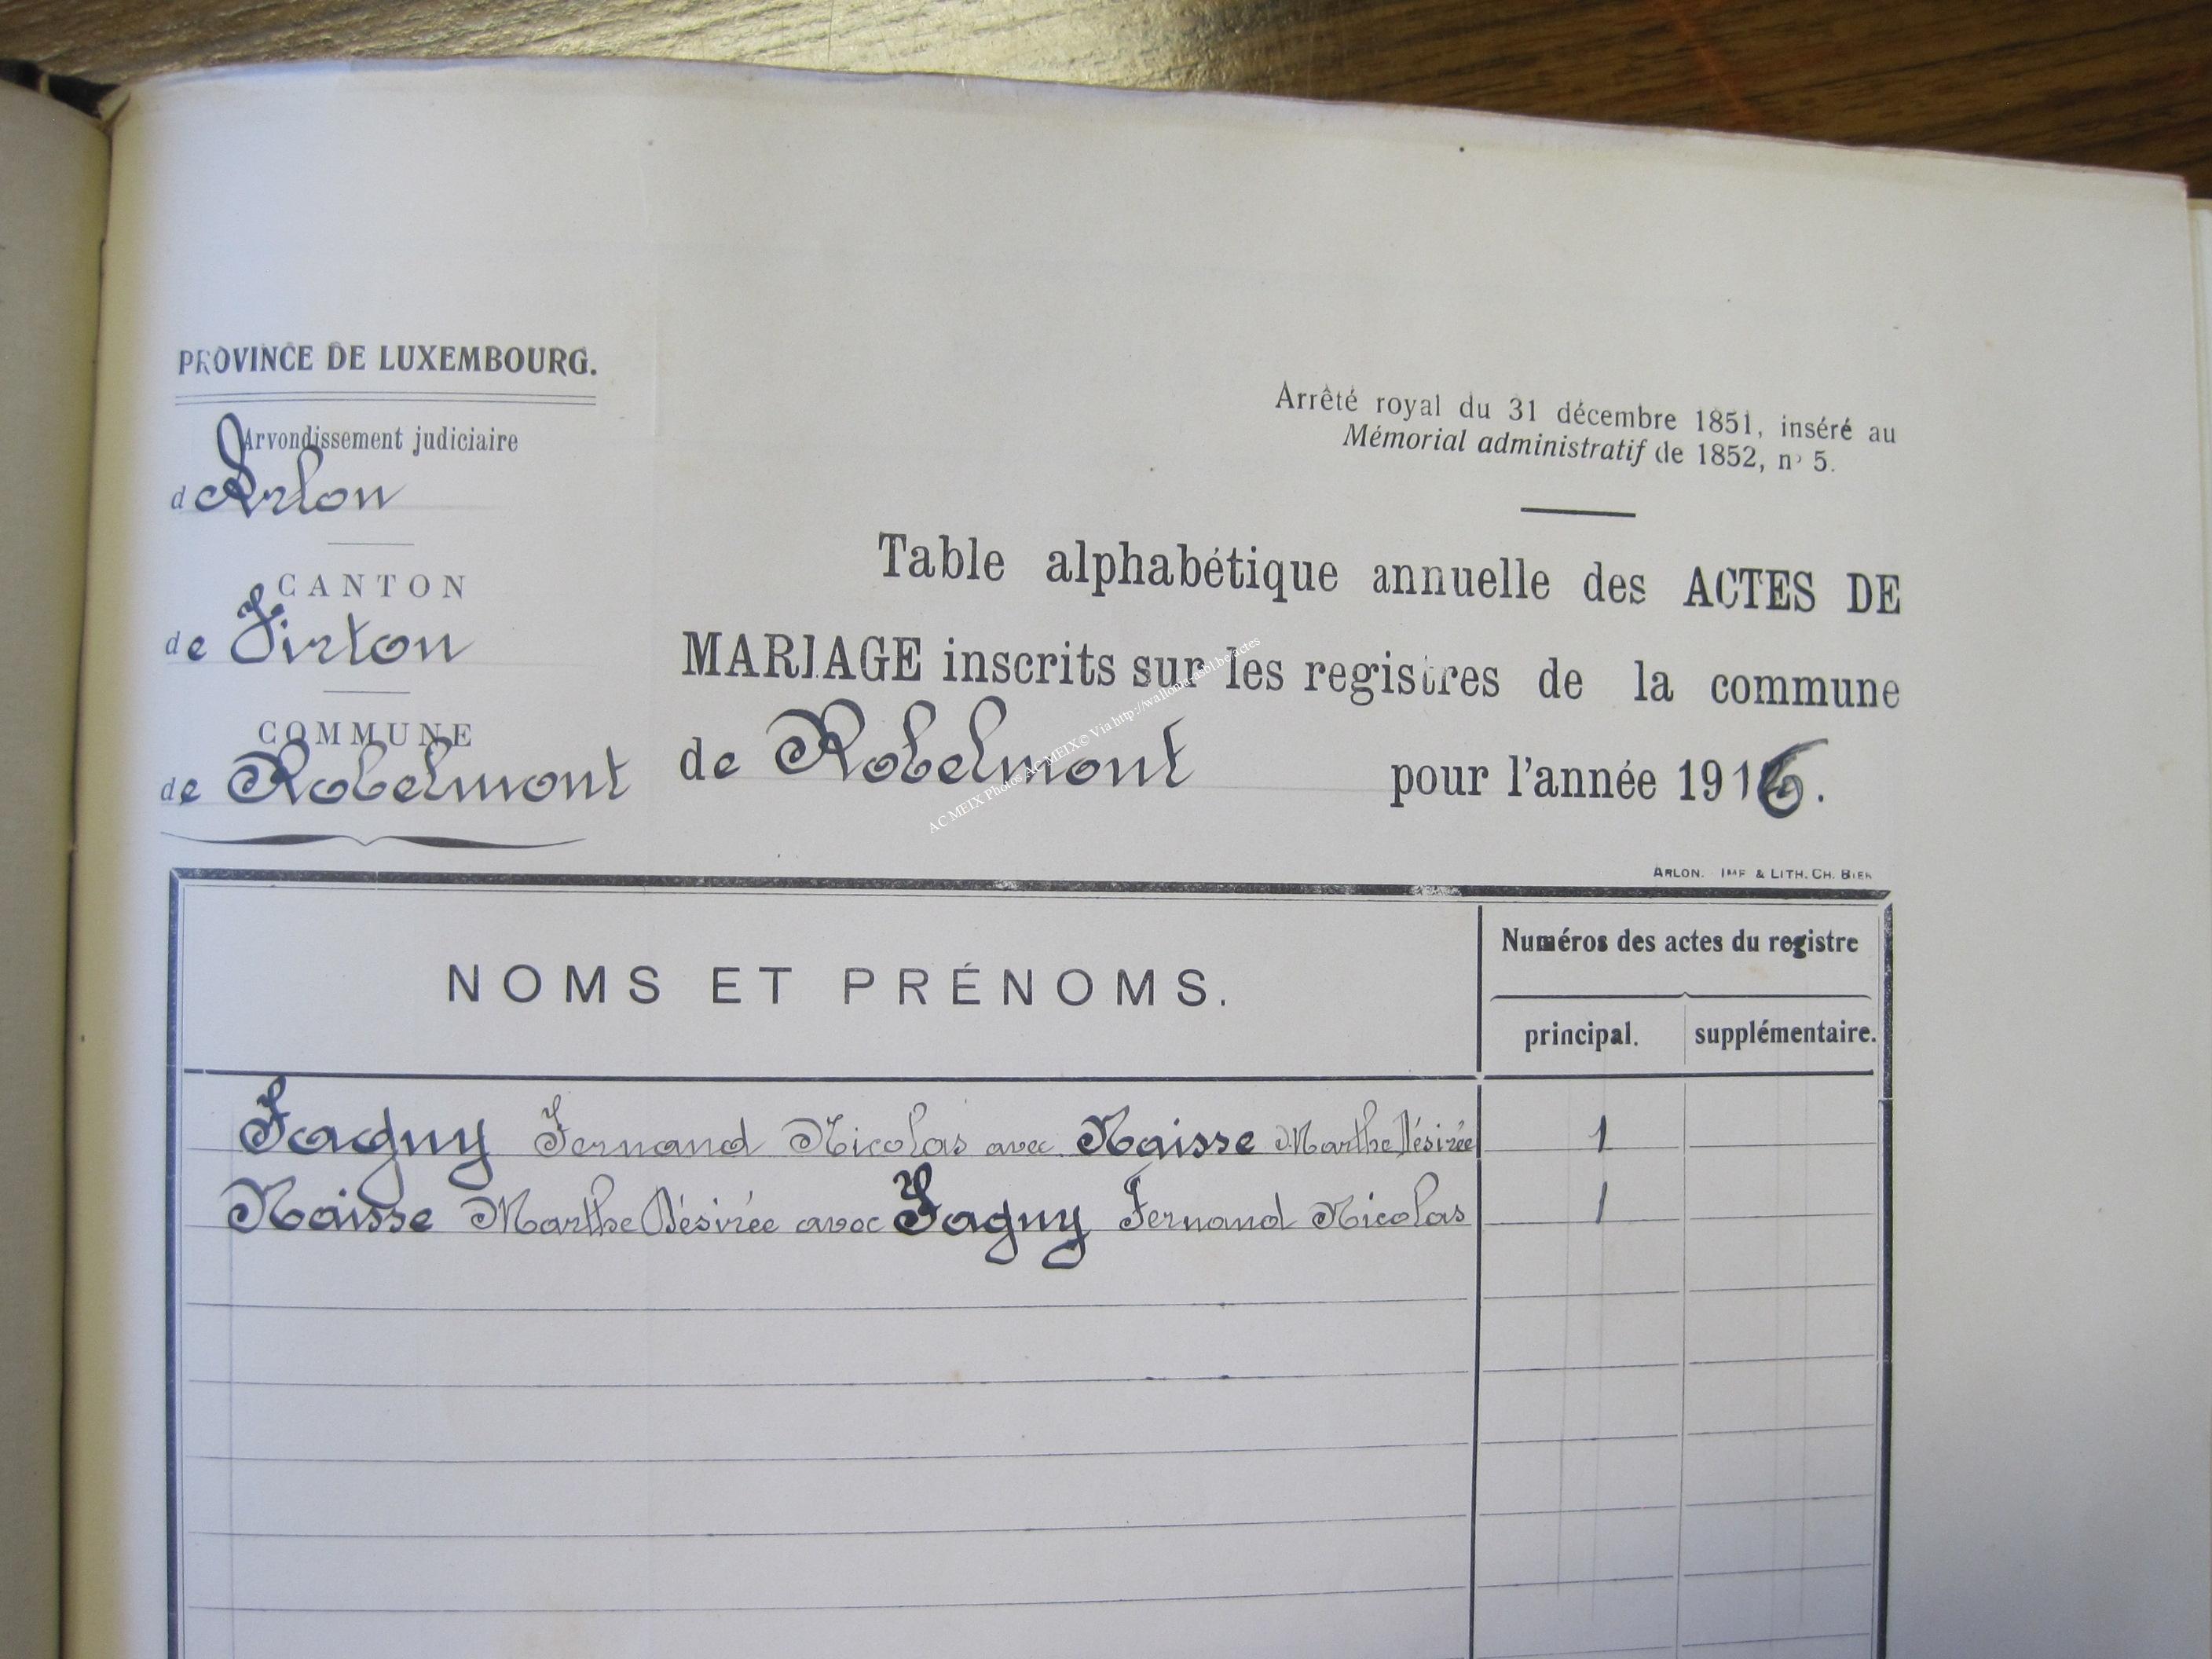 PROVINCE DE LUXEMBOURG.
Arrondissement judiciaire
d'Arlon
CANTON
de Virton
COMMUNE
de Robelmont
Arrêté royal du 31 décembre 1851, inséré au
Mémorial administratif de 1852, n° 5.
Table alphabétique annuelle des ACTES DE
MARIAGE inscrits sur les registres de la commune
de Robelmont pour l'année 1916.
AC MEIX Photos AC MEIX© Via http://wallonia.asbl.be/actes
ARLON. IMP & LITH. CH. BIER
NOMS ET PRÉNOMS.
Numéros des actes du registre
principal. supplémentaire.
Fagny Fernand Nicolas avec Naisse Marthe Désirée 1
Naisse Marthe Désirée avec Fagny Fernand Nicolas 1